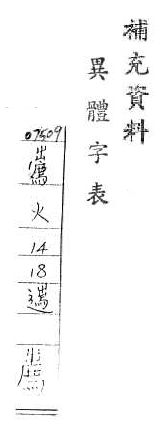 補充資料
異體字表
07509
火
14
18